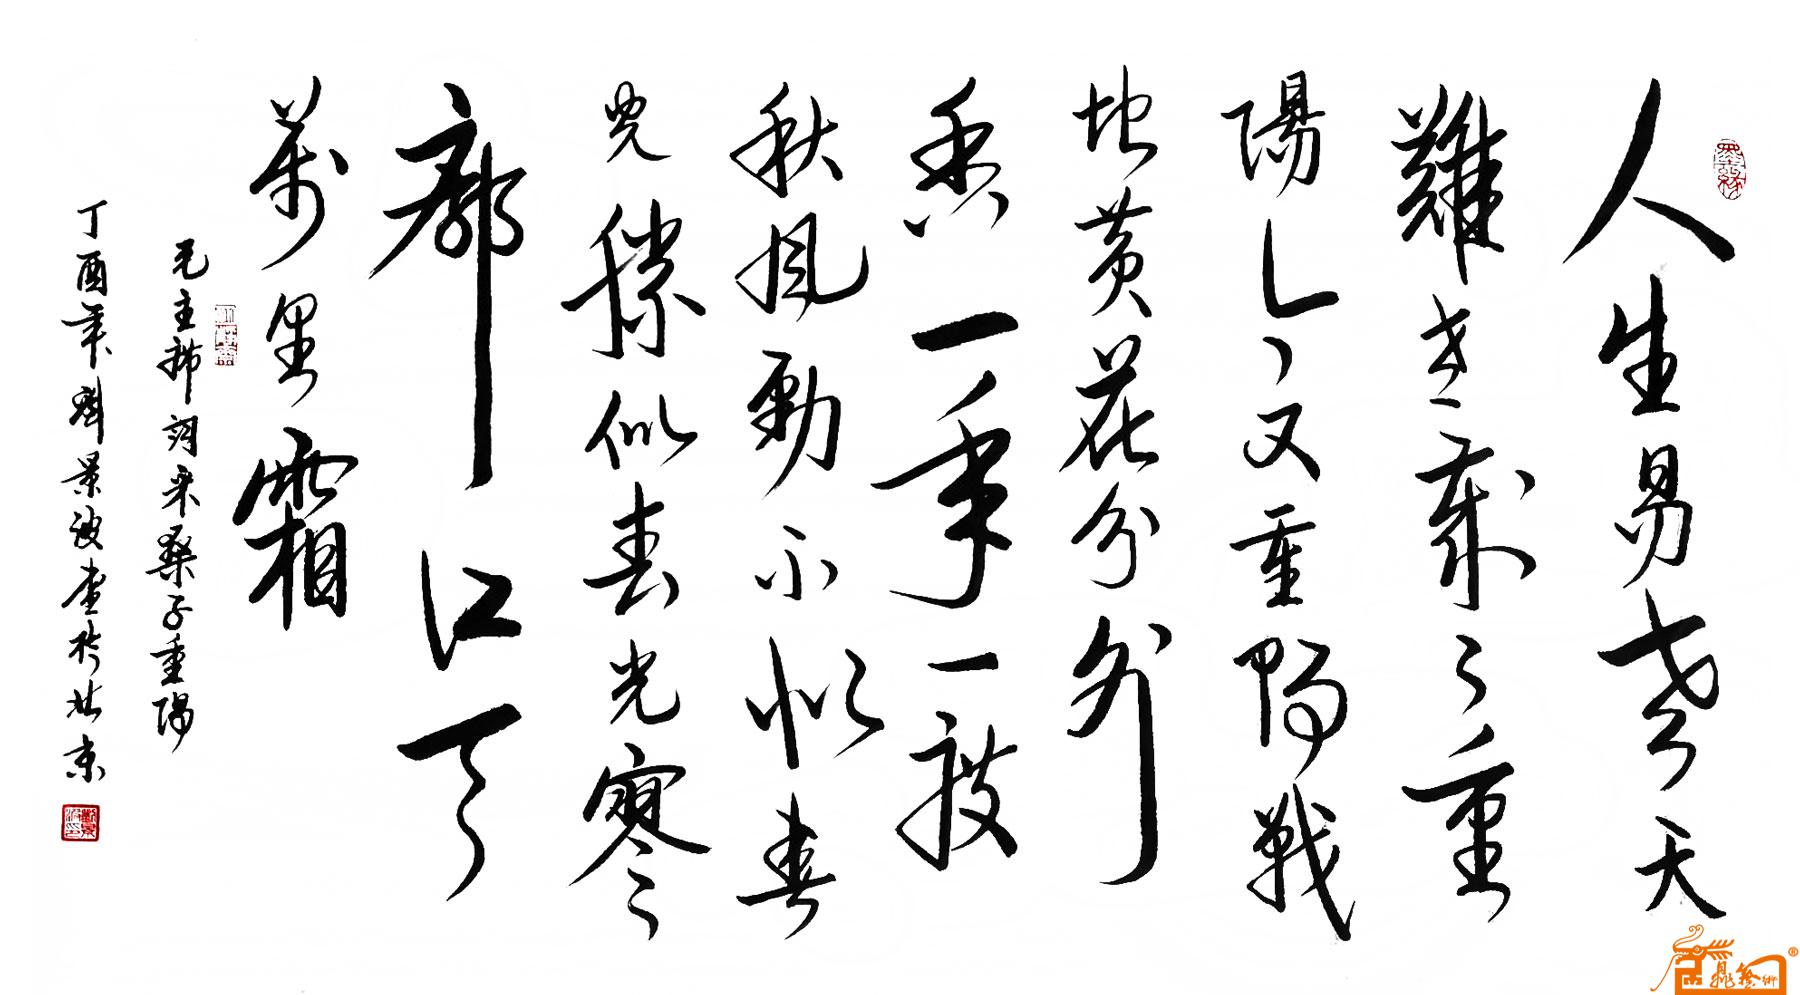 墨缘
人生易老天
難老歲歲重
陽今又重陽戰
地黄花分外
香一年一度
秋風勁不似春
光勝似春光寥
廓江天
萬里霜
毛主席詞采桑子重陽
丁酉年劉景波書於北京
劉景波印